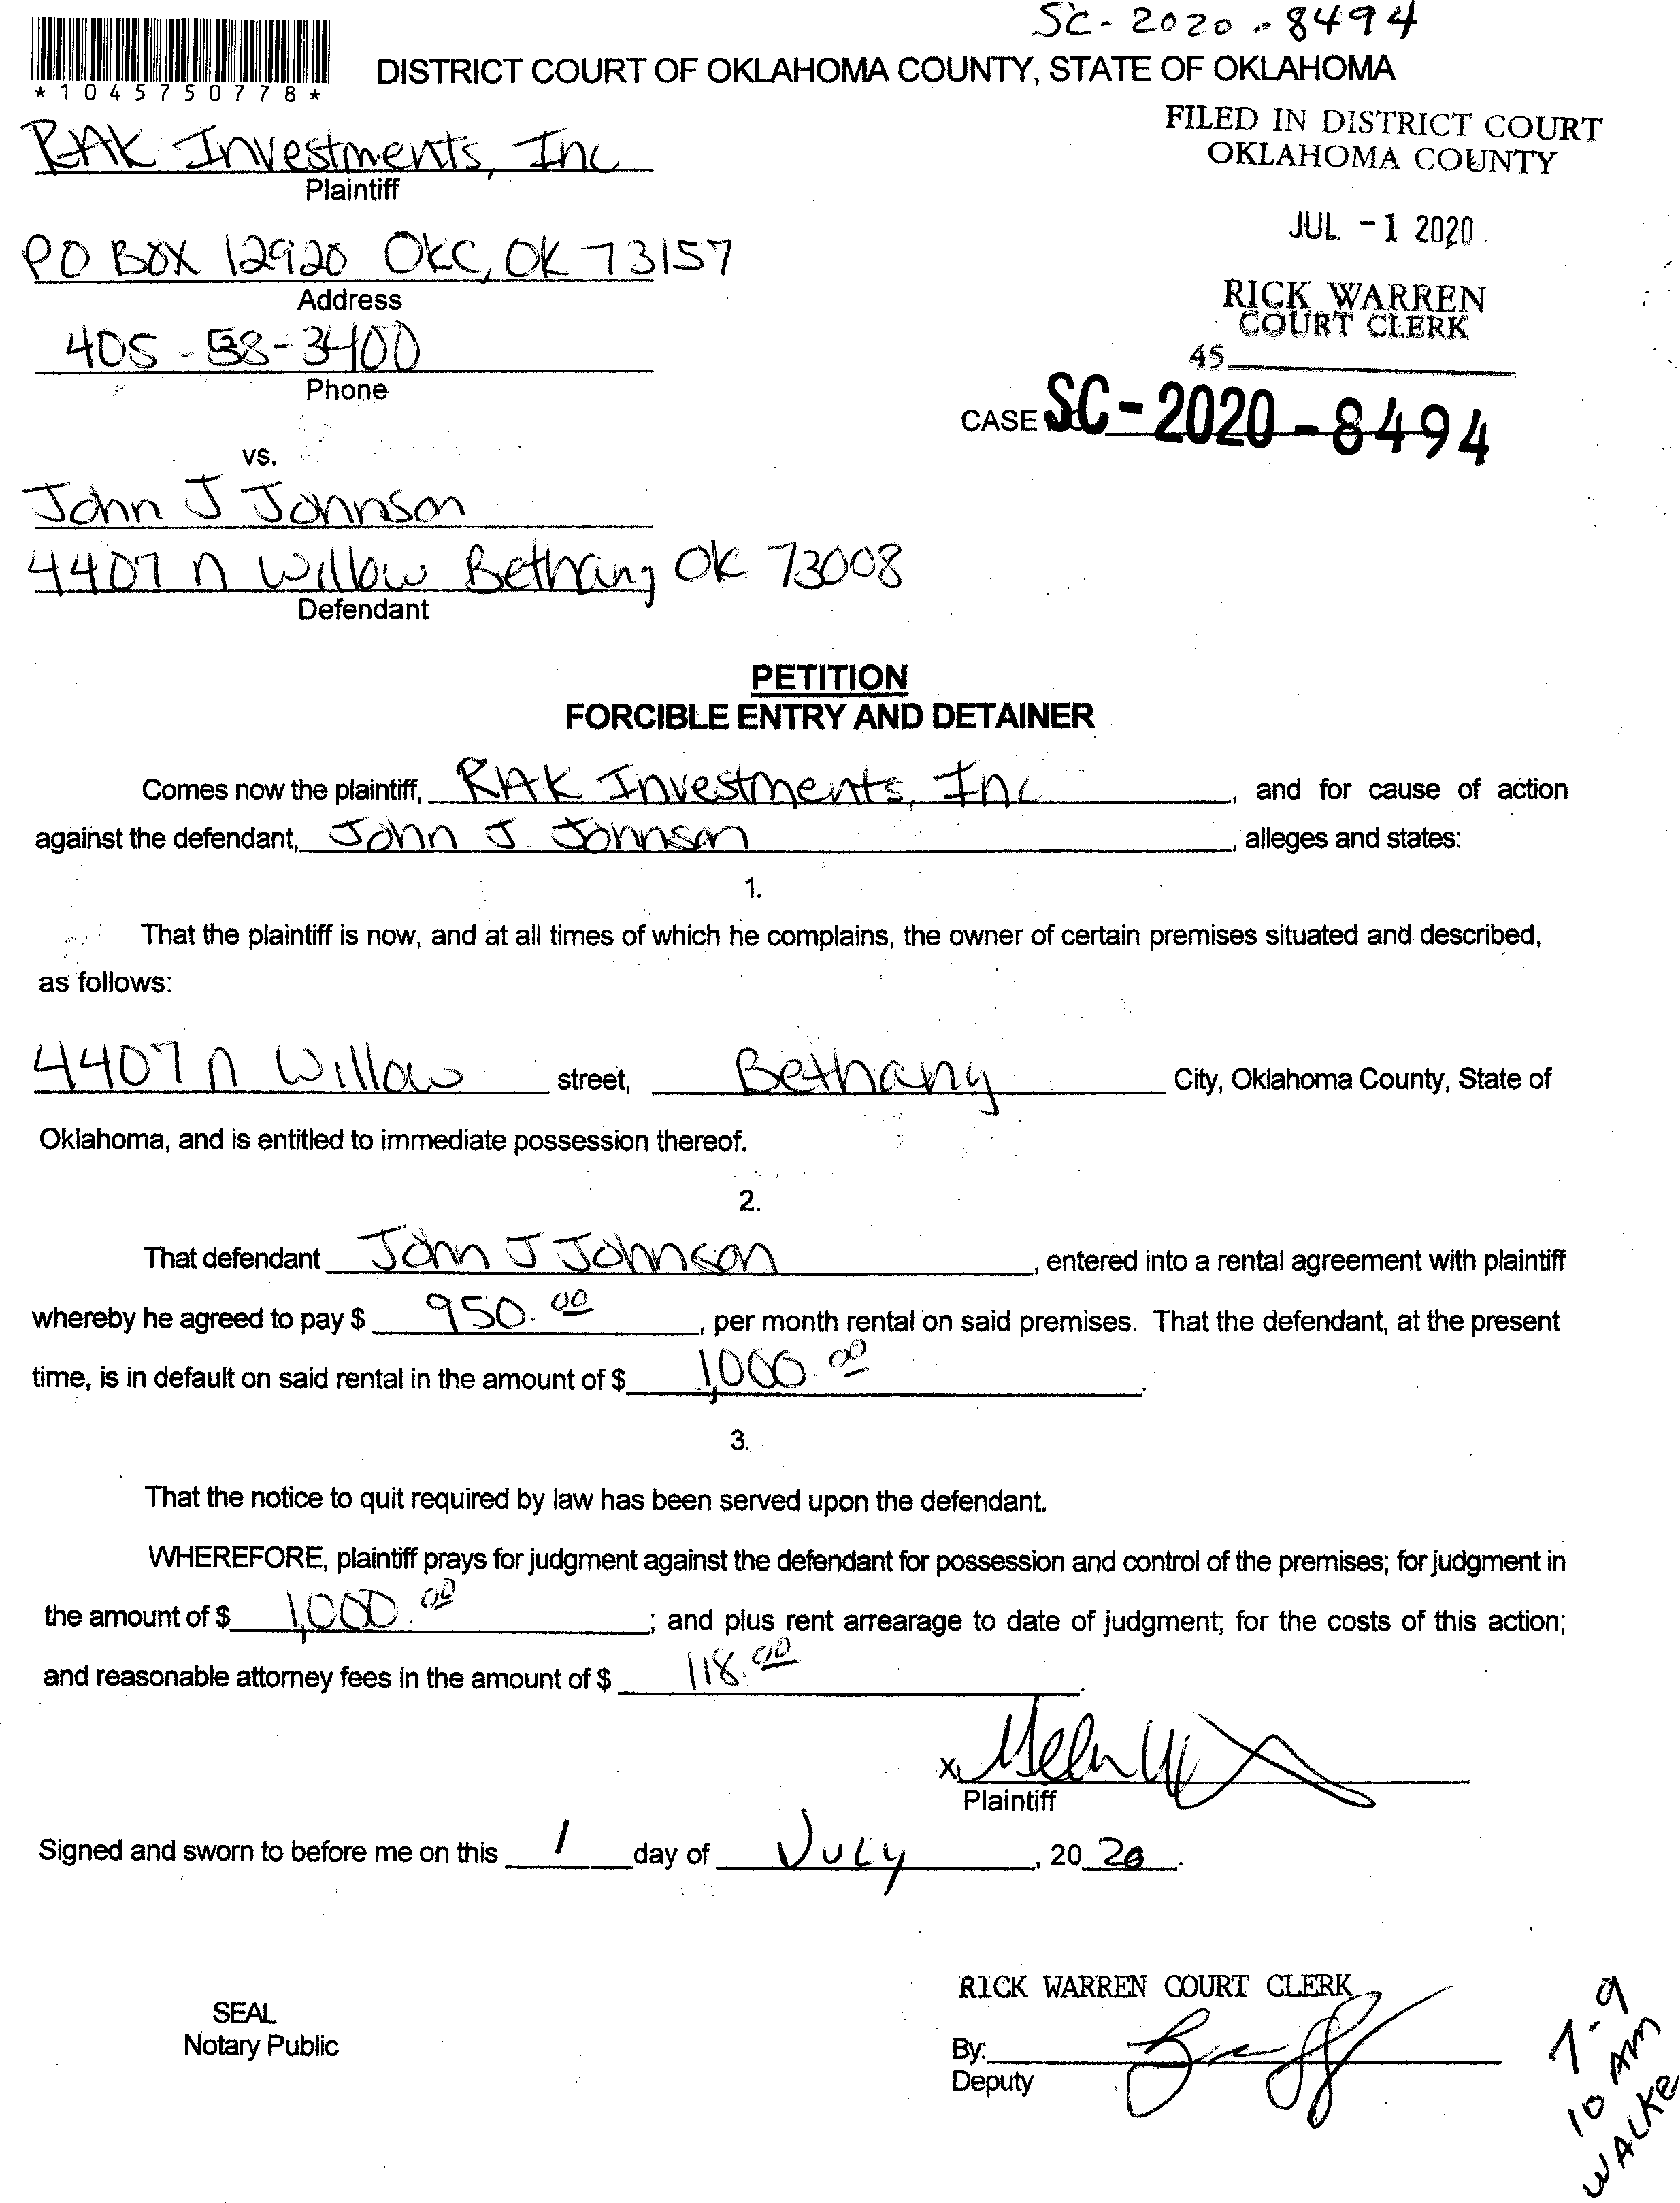 SC-2020-8494
*1045750778*
DISTRICT COURT OF OKLAHOMA COUNTY, STATE OF OKLAHOMA
FILED IN DISTRICT COURT
OKLAHOMA COUNTY
RAK Investments, Inc
Plaintiff
JUL -1 2020
PO BOX 12920 OKC, OK 73157
Address
RICK WARREN
COURT CLERK
405-58-3400
Phone
45
CASE SC-2020-8494
vs.
John J Johnson
4407 N Willow Bethany OK 73008
Defendant
PETITION
FORCIBLE ENTRY AND DETAINER
Comes now the plaintiff, RAK Investments, Inc, and for cause of action
against the defendant, John J. Johnson, alleges and states:
1.
That the plaintiff is now, and at all times of which he complains, the owner of certain premises situated and described,
as follows:
4407 N Willow street, Bethany City, Oklahoma County, State of
Oklahoma, and is entitled to immediate possession thereof.
2.
That defendant John J Johnson, entered into a rental agreement with plaintiff
whereby he agreed to pay $ 950.00, per month rental on said premises. That the defendant, at the present
time, is in default on said rental in the amount of $ 1,000.00.
3.
That the notice to quit required by law has been served upon the defendant.
WHEREFORE, plaintiff prays for judgment against the defendant for possession and control of the premises; for judgment in
the amount of $ 1,000.00; and plus rent arrearage to date of judgment; for the costs of this action;
and reasonable attorney fees in the amount of $ 118.00.
X
Plaintiff
Signed and sworn to before me on this 1 day of July, 2020.
RICK WARREN COURT CLERK
SEAL
Notary Public
By:
Deputy
7-9
10 AM
WALKE